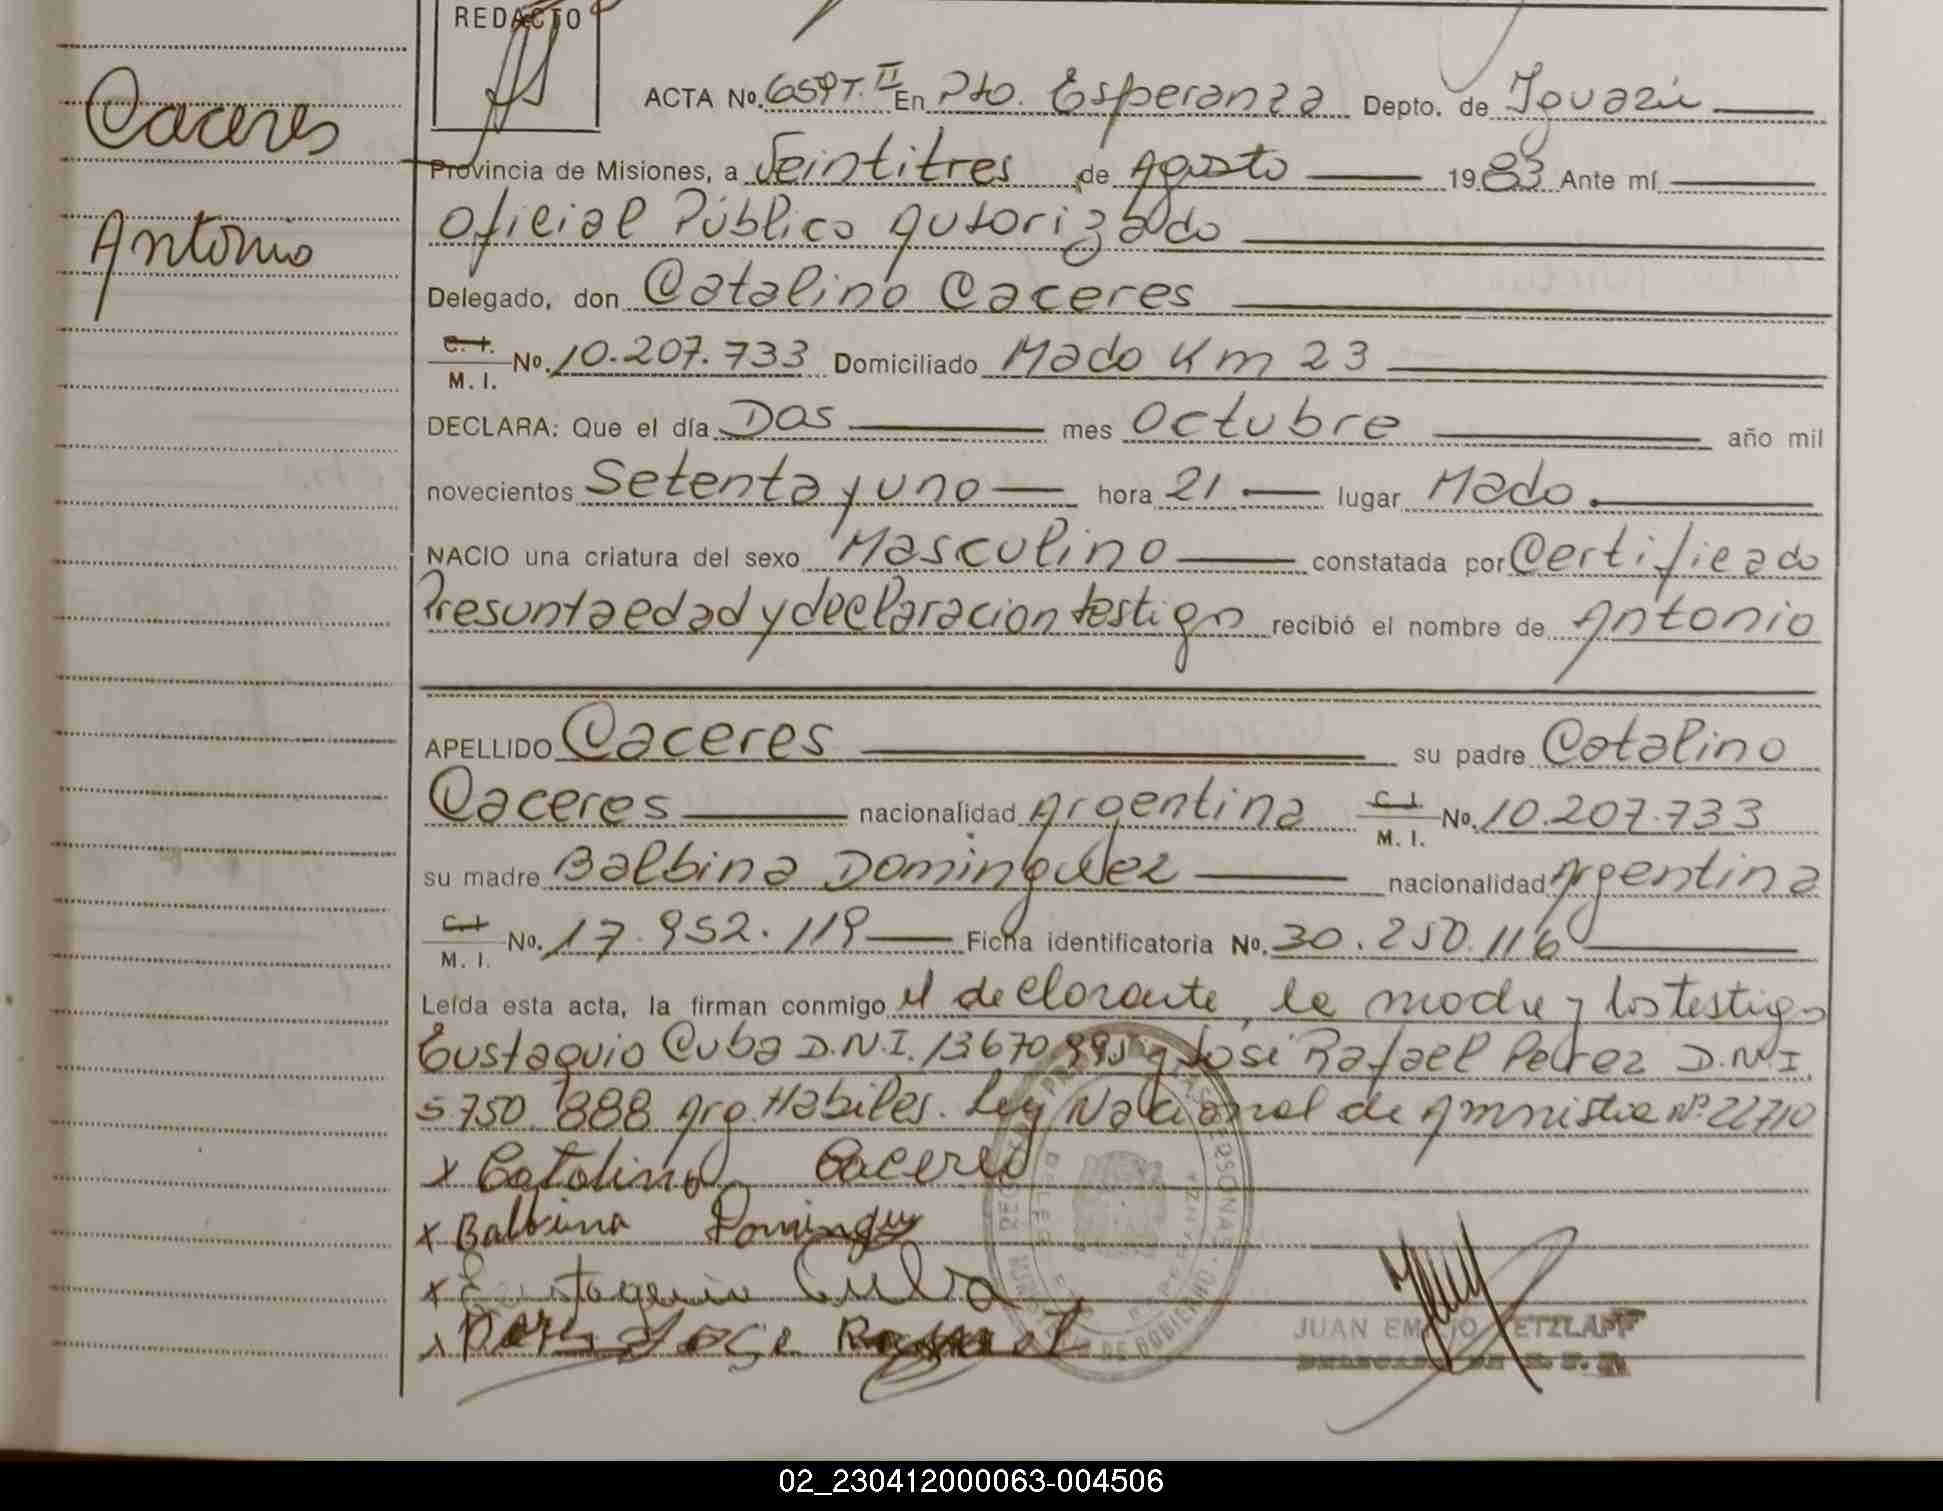 REDACTO
Caceres
Antonio
ACTA No. 659 T. II En Pto. Esperanza Depto. de Iguazú
Provincia de Misiones, a Veintitres de Agosto 1983 Ante mí
Oficial Público Autorizado
Delegado, don Catalino Caceres
C. I. M. I. No. 10.207.733 Domiciliado Mado Km 23
DECLARA: Que el día Dos mes Octubre año mil
novecientos Setenta y uno hora 21 lugar Mado.
NACIO una criatura del sexo Masculino constatada por Certificado
Presunta edad y declaracion testigo recibió el nombre de Antonio
APELLIDO Caceres su padre Catalino
Caceres nacionalidad Argentina C. I. M. I. No. 10.207.733
su madre Balbina Dominguez nacionalidad Argentina
C. I. M. I. No. 17.952.119 Ficha identificatoria No. 30.250.116
Leída esta acta, la firman conmigo el declarante, la madre y los testigos
Eustaquio Cuba D.N.I. 13670995 y José Rafael Perez D.N.I.
5.750.888 Arg. Habiles. Ley Nacional de Amnistia Nº 22710
x Catalino Caceres
x Balbina Dominguez
x Eustaquio Cuba
x Perez Jose Rafael
JUAN EMILIO
02_230412000063-004506